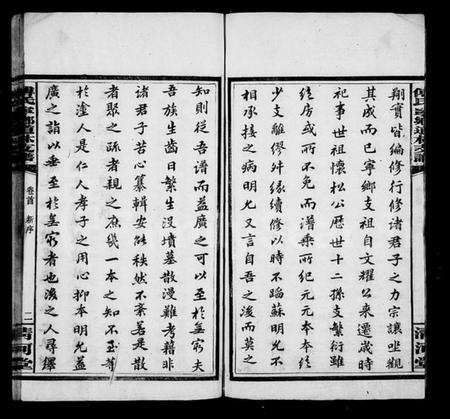 翔實皆編修行修諸君子之力宗讓坐觀
其成而已寧鄉支祖自文耀公來遷歲時
祀事世祖懷松公歷世十二孫支繁衍雖
往房或不而譜乘所紀元元本本終
少支離謬舛緣續修以時不蹈蘇明允不
相承接之病明允又言自吾之後而莫之
清河堂
知則從吾譜而益廣之可以至於無窮夫
吾族生齒日繁生沒墳墓散漫難考藉非
諸君子苦心纂輯安能秩然不紊若是散
者聚之疏者親之庶幾一本之知不至等
於塗人是仁人孝子之用心抑本明允益
廣之詣以垂至於無窮者也後之人尋繹
卷首
新序
二
清河堂